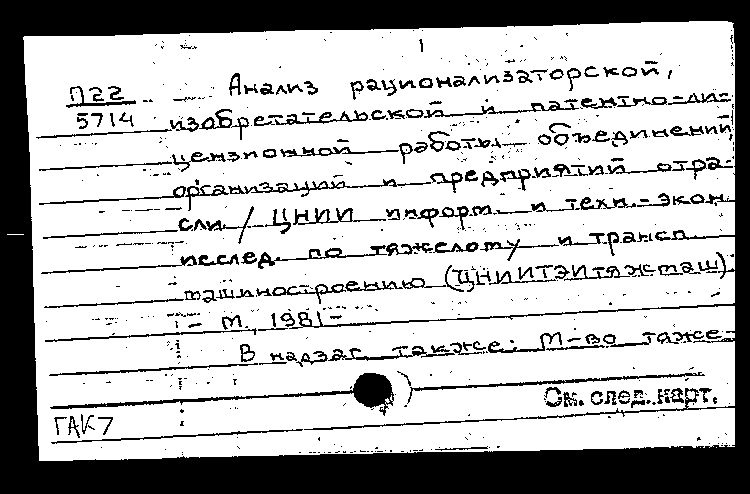 1
П22
5714
Анализ рационализаторской,
изобретательской и патентно-ли-
цензионной работы объединений
организаций и предприятий отра-
сли / ЦНИИ информ. и техн.-экон.
исслед. по тяжелому и трансп.
машиностроению (ЦНИИТЭИтяжмаш).
- М., 1981-
В надзаг. также: М-во тяже-
См. след. карт.
ГАК7